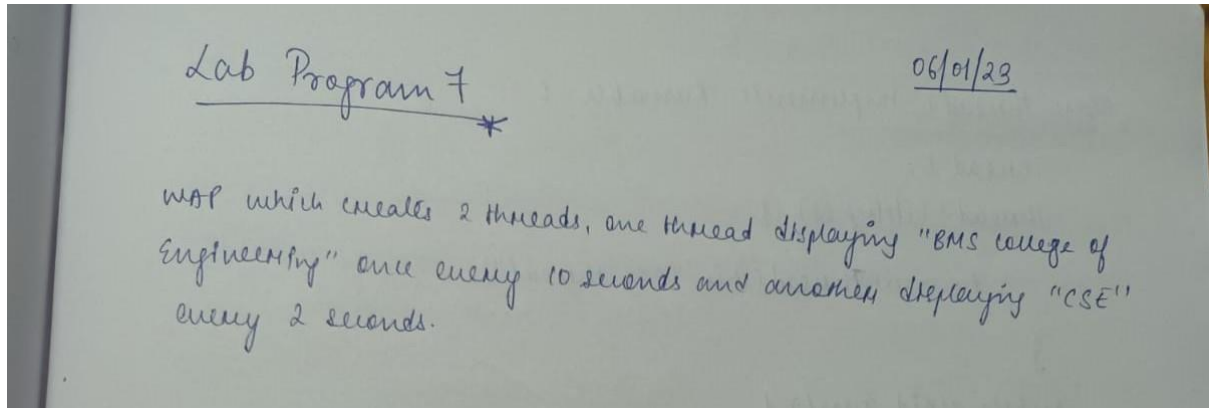 Lab Program 7
06/01/23
WAP which creates 2 threads, one thread displaying "BMS college of
Engineering" once every 10 seconds and another displaying "CSE"
every 2 seconds.